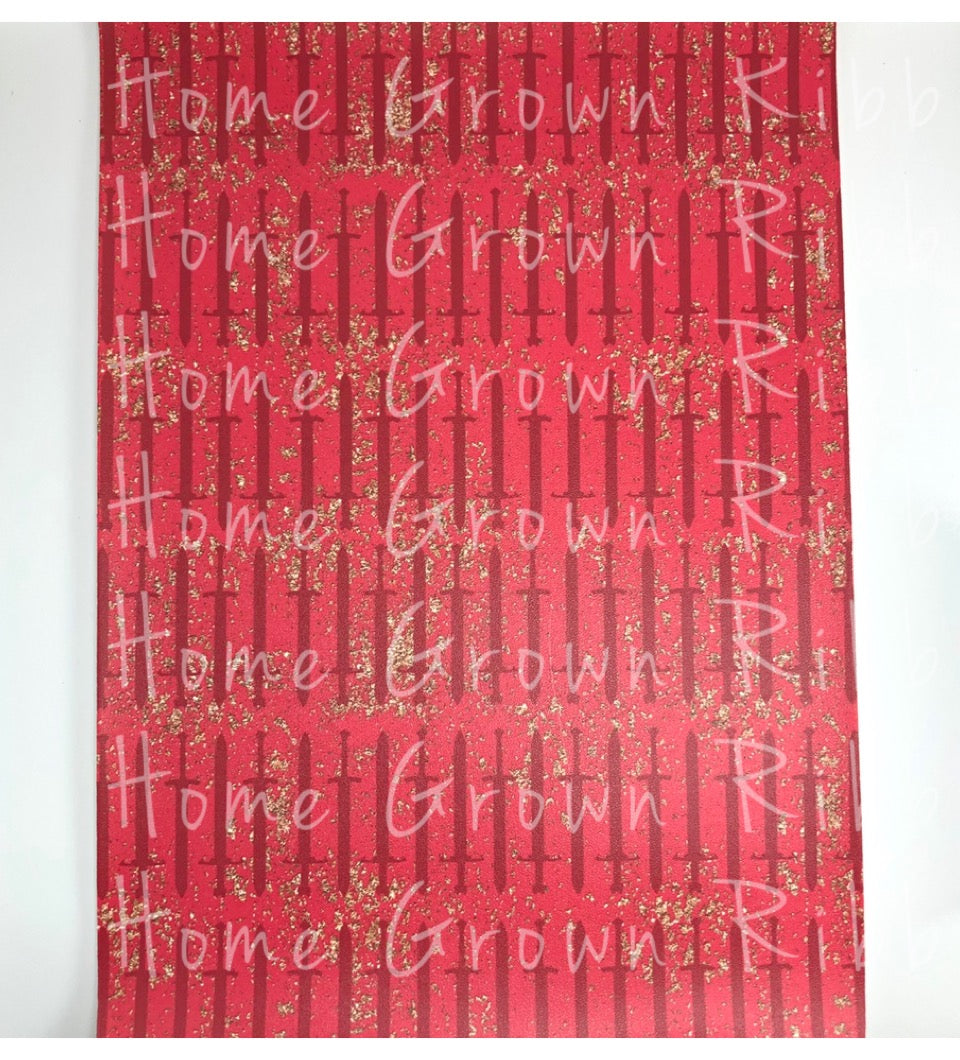 Home Grown Ribb
Home Grown Ribb
Home Grown Ribb
Home Grown Ribb
Home Grown Ribb
Home Grown Ribb
Home Grown Ribb